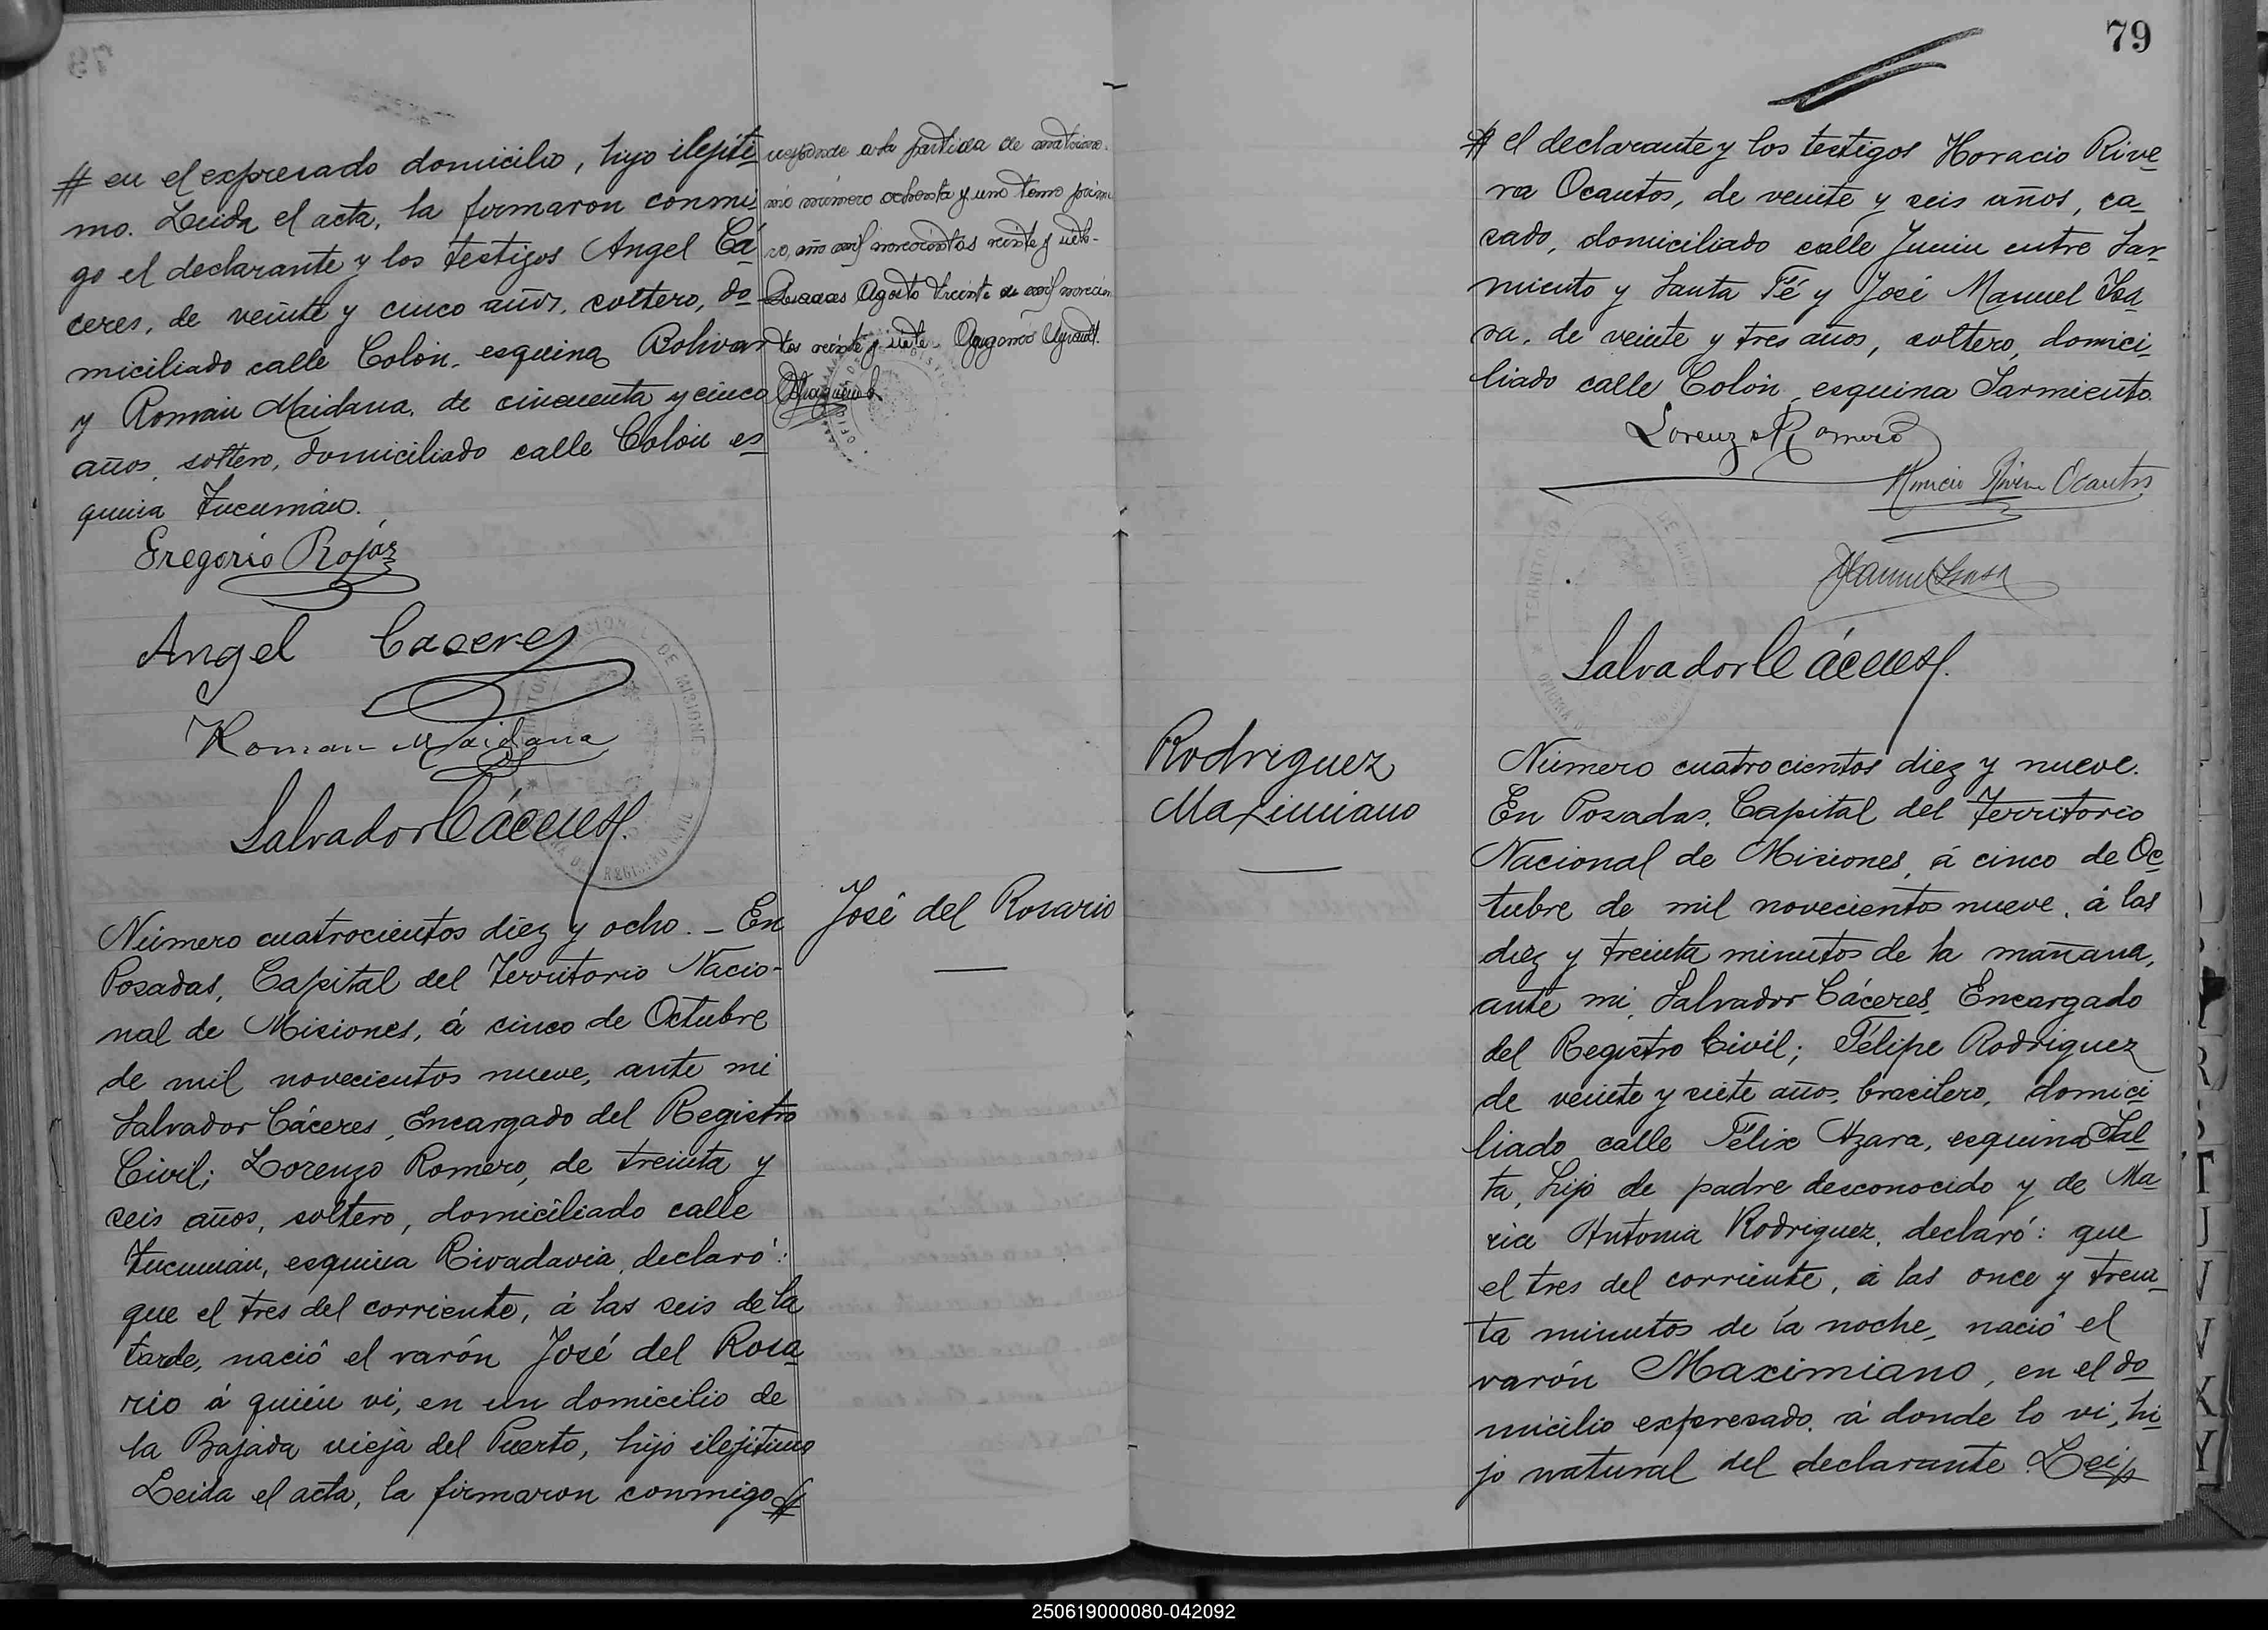 # en el expresado domicilio, hijo ilejiti
mo. Leida el acta, la firmaron conmi
go el declarante y los testigos Angel Cá
ceres, de veinte y cinco años, soltero, do
miciliado calle Colón, esquina Bolivar
y Román Maidana, de cincuenta y cinco
años, soltero, domiciliado calle Colón es
quina Tucumán.
Gregorio Rojas
Angel Caceres
Roman Maidana
Salvador Cáceres
Número cuatrocientos diez y ocho. - En
Posadas, Capital del Territorio Nacio-
nal de Misiones, á cinco de Octubre
de mil novecientos nueve, ante mi
Salvador Cáceres, Encargado del Registro
Civil; Lorenzo Romero, de treinta y
seis años, soltero, domiciliado calle
Tucumán, esquina Rivadavia, declaró:
que el tres del corriente, á las seis de la
tarde, nació el varón José del Rosa
rio á quién vi, en un domicilio de
la Bajada vieja del Puerto, hijo ilejitimo
Leida el acta, la firmaron conmigo #
partida de matrimo-
nio número ochenta y uno tomo prime
ro, año mil novecientos veinte y siete-
Posadas Agosto treinta de mil novecien
tos veinte y siete.
José del Rosario
79
# el declarante y los testigos Horacio Rive
ra Ocantos, de veinte y seis años, ca
sado, domiciliado calle Junin entre Sar
miento y Santa Fé y José Manuel Isa
sa, de veinte y tres años, soltero, domici
liado calle Colón, esquina Sarmiento.
Lorenzo Romero
Horacio Rivera Ocantos
Manuel Isasa
Salvador Cáceres
Rodriguez
Maximiano
Número cuatrocientos diez y nueve.
En Posadas, Capital del Territorio
Nacional de Misiones, á cinco de Oc
tubre de mil novecientos nueve, á las
diez y treinta minutos de la mañana,
ante mi, Salvador Cáceres, Encargado
del Registro Civil; Félipe Rodriguez
de veinte y siete años, brasilero, domici
liado calle Félix Azara, esquina Sal
ta, hijo de padre desconocido y de Ma
ria Antonia Rodriguez, declaró: que
el tres del corriente, á las once y trein
ta minutos de la noche, nació el
varón Maximiano, en el do
micilio expresado, á donde lo vi, hi
jo natural del declarante. Lei#
250619000080-042092